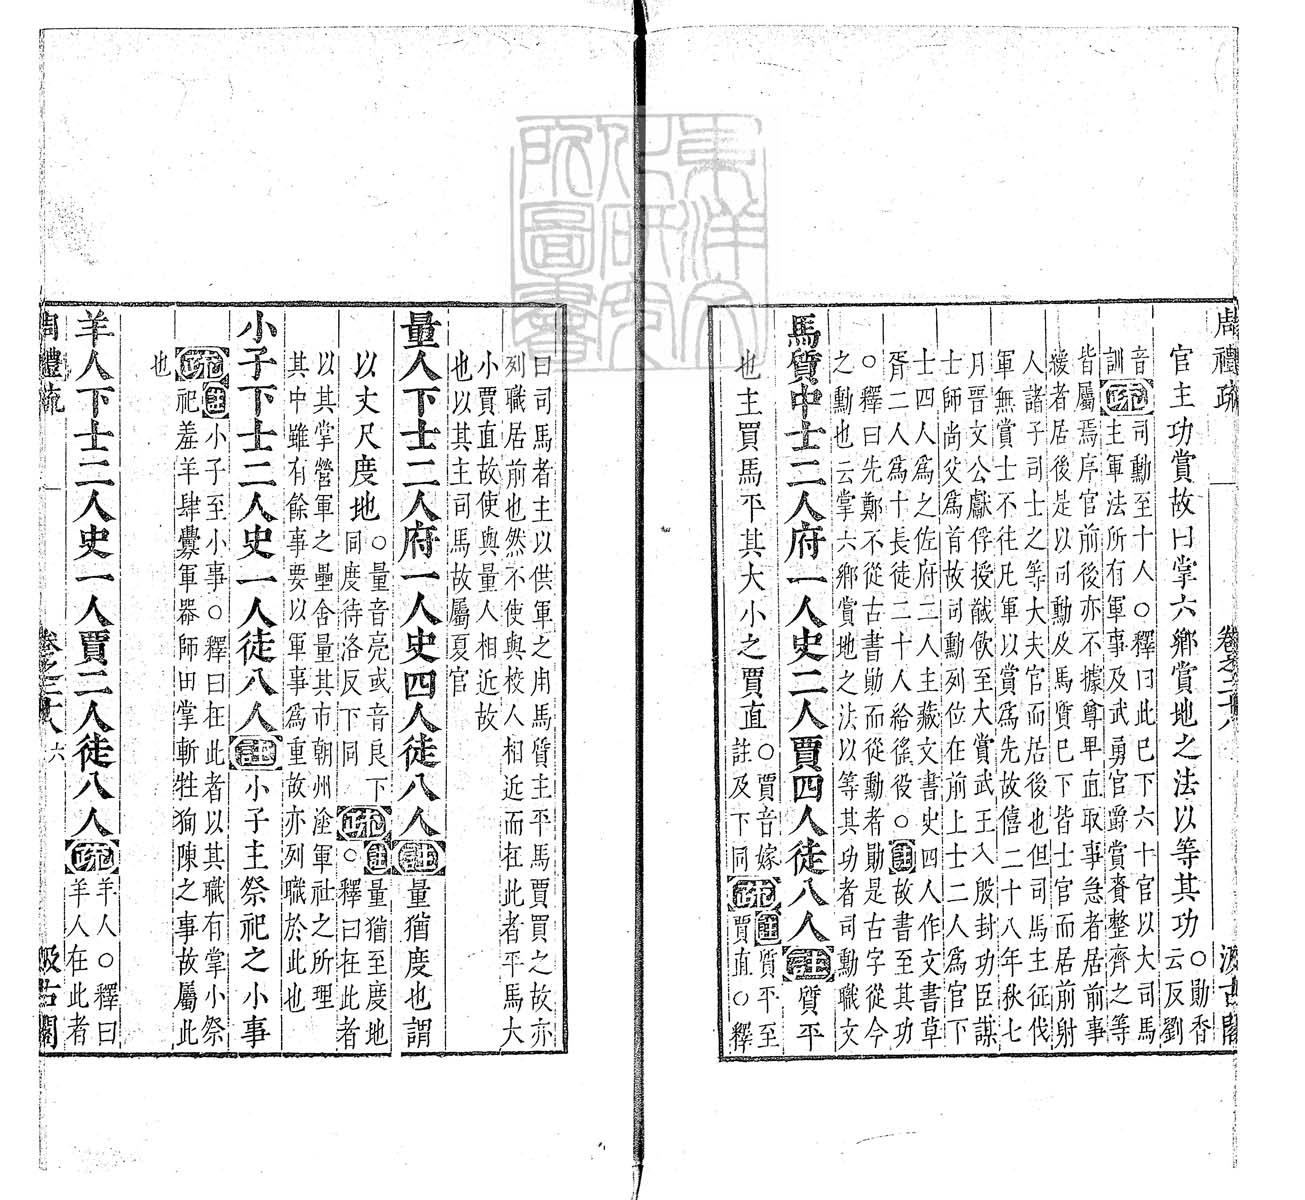 周禮疏 卷之二十八 汲古閣
官主功賞故曰掌六鄉賞地之法以等其功
○勛香
云反劉
音
訓
疏
司勳至十人○釋曰此已下六十官以大司馬
主軍法所有軍事及武勇官爵賞賚整齊之等
皆屬焉序官前後亦不據尊卑直取事急者居前事
緩者居後是以司勳及馬質已下皆士官而居前射
人諸子司士之等大夫官而居後也但司馬主征伐
軍無賞士不往凡軍以賞爲先故僖二十八年秋七
月晉文公獻俘授馘飲至大賞武王入殷封功臣謀
士師尚父爲首故司勳列位在前上士二人爲官下
士四人爲之佐府二人主藏文書史四人作文書草
胥二人爲十長徒二十人給徭役○註故書至其功
○釋曰先鄭不從古書勛而從勳者勛是古字從今
之勳也云掌六鄉賞地之法以等其功者司勳職文
馬質中士二人府一人史二人賈四人徒八人註質平
也主買馬平其大小之賈直
○賈音嫁
註及下同
疏
註質平至
賈直○釋
曰司馬者主以供軍之用馬質主平馬賈買之故亦
列職居前也然不使與校人相近而在此者平馬大
小賈直故使與量人相近故
也以其主司馬故屬夏官
量人下士二人府一人史四人徒八人註量猶度也謂
以丈尺度地
○量音亮或音良下
同度待洛反下同
疏
註量猶至度地
○釋曰在此者
以其掌營軍之壘舍量其市朝州塗軍社之所理
其中雖有餘事要以軍事爲重故亦列職於此也
小子下士二人史一人徒八人註小子主祭祀之小事
疏
註小子至小事○釋曰在此者以其職有掌小祭
祀羞羊肆釁軍器師田掌斬牲狥陳之事故屬此
也
羊人下士二人史一人賈二人徒八人疏
羊人○釋曰
羊人在此者
周禮疏 卷之二十八 六 汲古閣
東洋文
化研究
所圖書